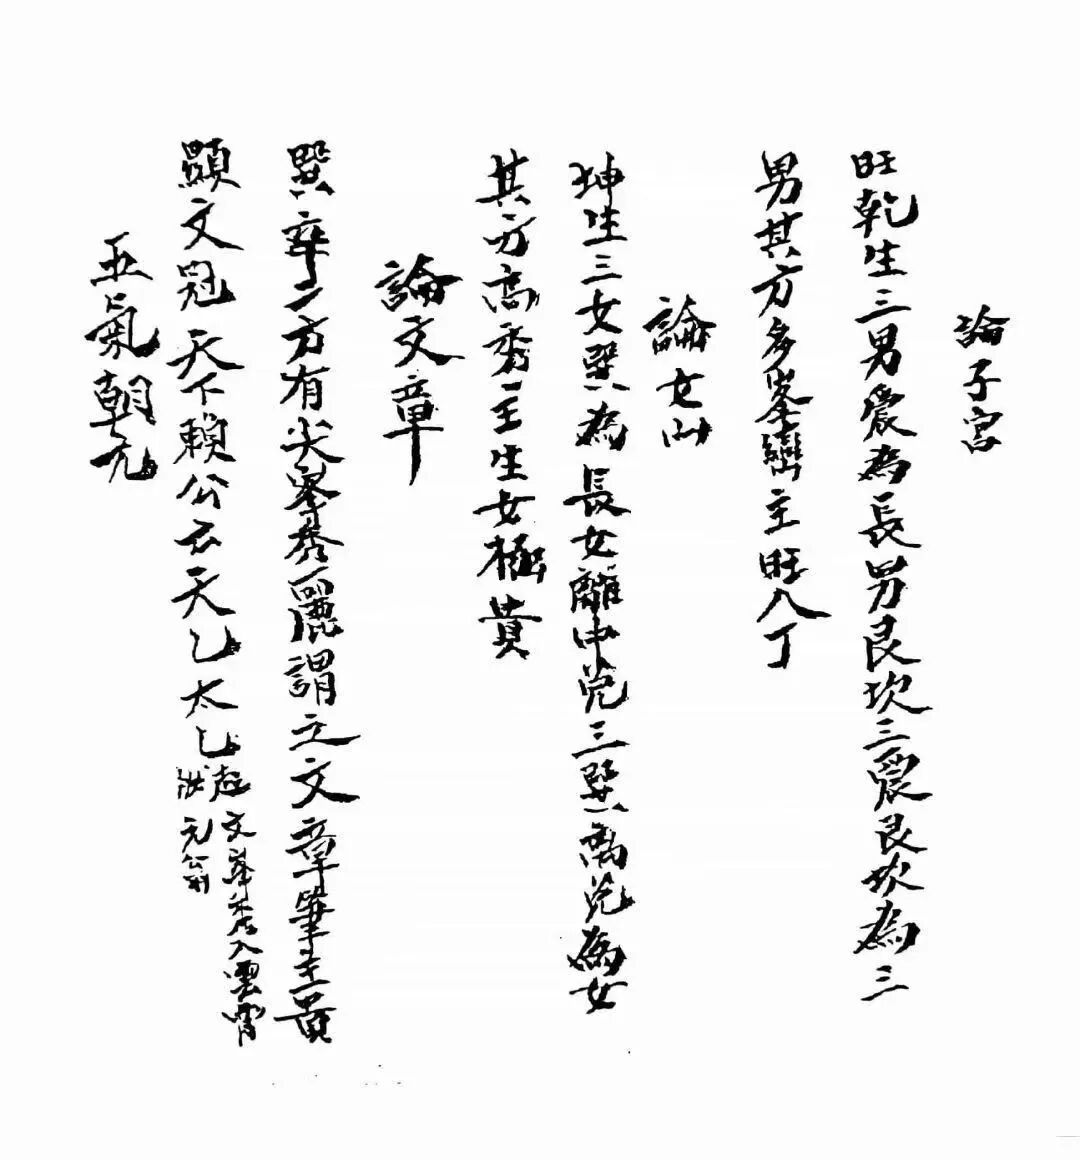 論子宫
旺乾生三男震為長男艮坎三震艮坎為三
男其方多峯巒主旺人丁
論女山
坤生三女巽為長女離中兑三巽离兑為女
其方高秀主生女極貴
論文章
巽辛二方有尖峯秀麗謂之文章筆主貴
顕文冠天下賴公云天乙太乙起文峯秀入雲霄
状元公
五氣朝元